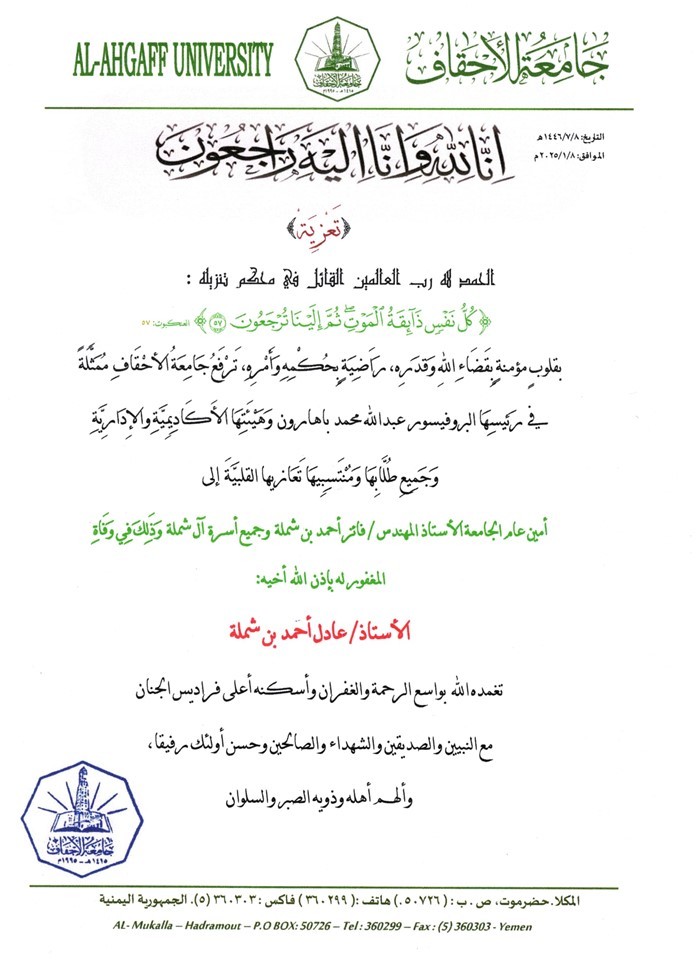 AL-AHGAFF UNIVERSITY
جامعة الأحقاف
جامعة الأحقاف
١٤١٥هـ - ١٩٩٥م
التاريخ: ١٤٤٦/٧/٨هـ
الموافق: ٢٠٢٥/١/٨م
انا لله وانا اليه راجعون
﴿تعزية﴾
الحمد لله رب العالمين القائل في محكم تنزيله :
﴿ كُلُّ نَفْسٍ ذَآئِقَةُ الْمَوْتِ ۖ ثُمَّ إِلَيْنَا تُرْجَعُونَ ٥٧ ﴾ العنكبوت: ٥٧
بقلوبٍ مؤمنةٍ بِقَضَاءِ اللهِ وَقَدَرِه، راضيَةٍ بِحُكْمِهِ وَأَمْرِهِ، تَرْفَعُ جَامِعَةُ الأحْقَافِ مُمَثَّلَةً
في رئيسِهَا البروفيسور عبدالله محمد باهارون وَهَيْئَتِهَا الأَكَادِيمِيَّةِ والإِدَارِيَّةِ
وَجَمِيعِ طُلَّابِهَا وَمُنْتَسِبِيهَا تَعَازيها القلبيَّة إلى
أمين عام الجامعة الأستاذ المهندس / فائز أحمد بن شملة وجميع أسرة آل شملة وَذَلِكَ فِي وَفَاةِ
المغفور له بإذن الله أخيه:
الأستاذ/ عادل أحمَد بن شملة
تغمده الله بواسع الرحمة والغفران وأسكنه أعلى فراديس الجنان
مع النبيين والصديقين والشهداء والصالحين وحسن أولئك رفيقا،
وألهم أهله وذويه الصبر والسلوان
جامعة الأحقاف
١٤١٥هـ - ١٩٩٥م
المكلا. حضرموت، ص. ب : ( ٥٠٧٢٦.) هاتف :( ٣٦٠٢٩٩ ) فاكس : ٣٦٠٣٠٣ (٥). الجمهورية اليمنية
AL- Mukalla – Hadramout – P.O BOX: 50726 – Tel : 360299 – Fax : (5) 360303 - Yemen